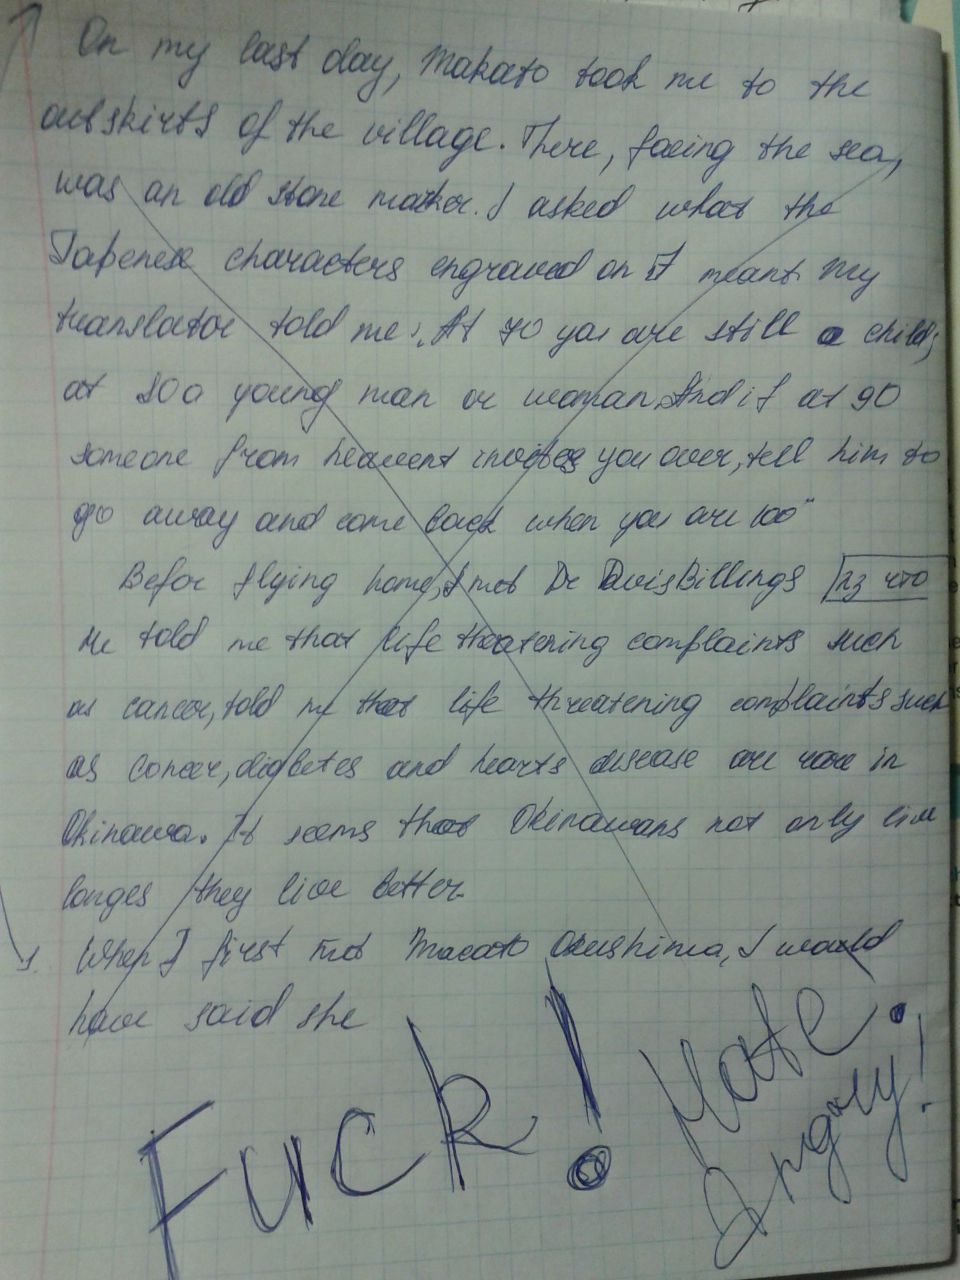 On my last day, Makato took me to the
outskirts of the village. There, facing the sea,
was an old stone marker. I asked what the
Japenese characters engraved on it meant. My
translator told me: „At 70 you are still a child;
at 80 a young man or woman. And if at 90
someone from heavent invites you over, tell him to
go away and come back when you are 100"
Befor flying home, I met Dr Davis Billings
He told me that life theatening complaints such
as cancer, told me that life threatening complaints such
as concer, diabetes and hearts disease are rare in
Okinawa. It seems that Okinawans not only live
longes they live better.
1. When I first met Macato Okushima, I would
have said she
FUCK!
Hate.
Angory!